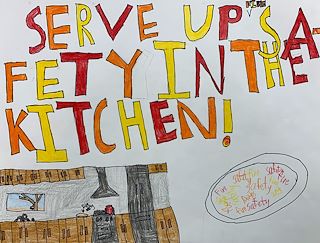 SERVE UP SA-
FETY IN THE
KITCHEN!